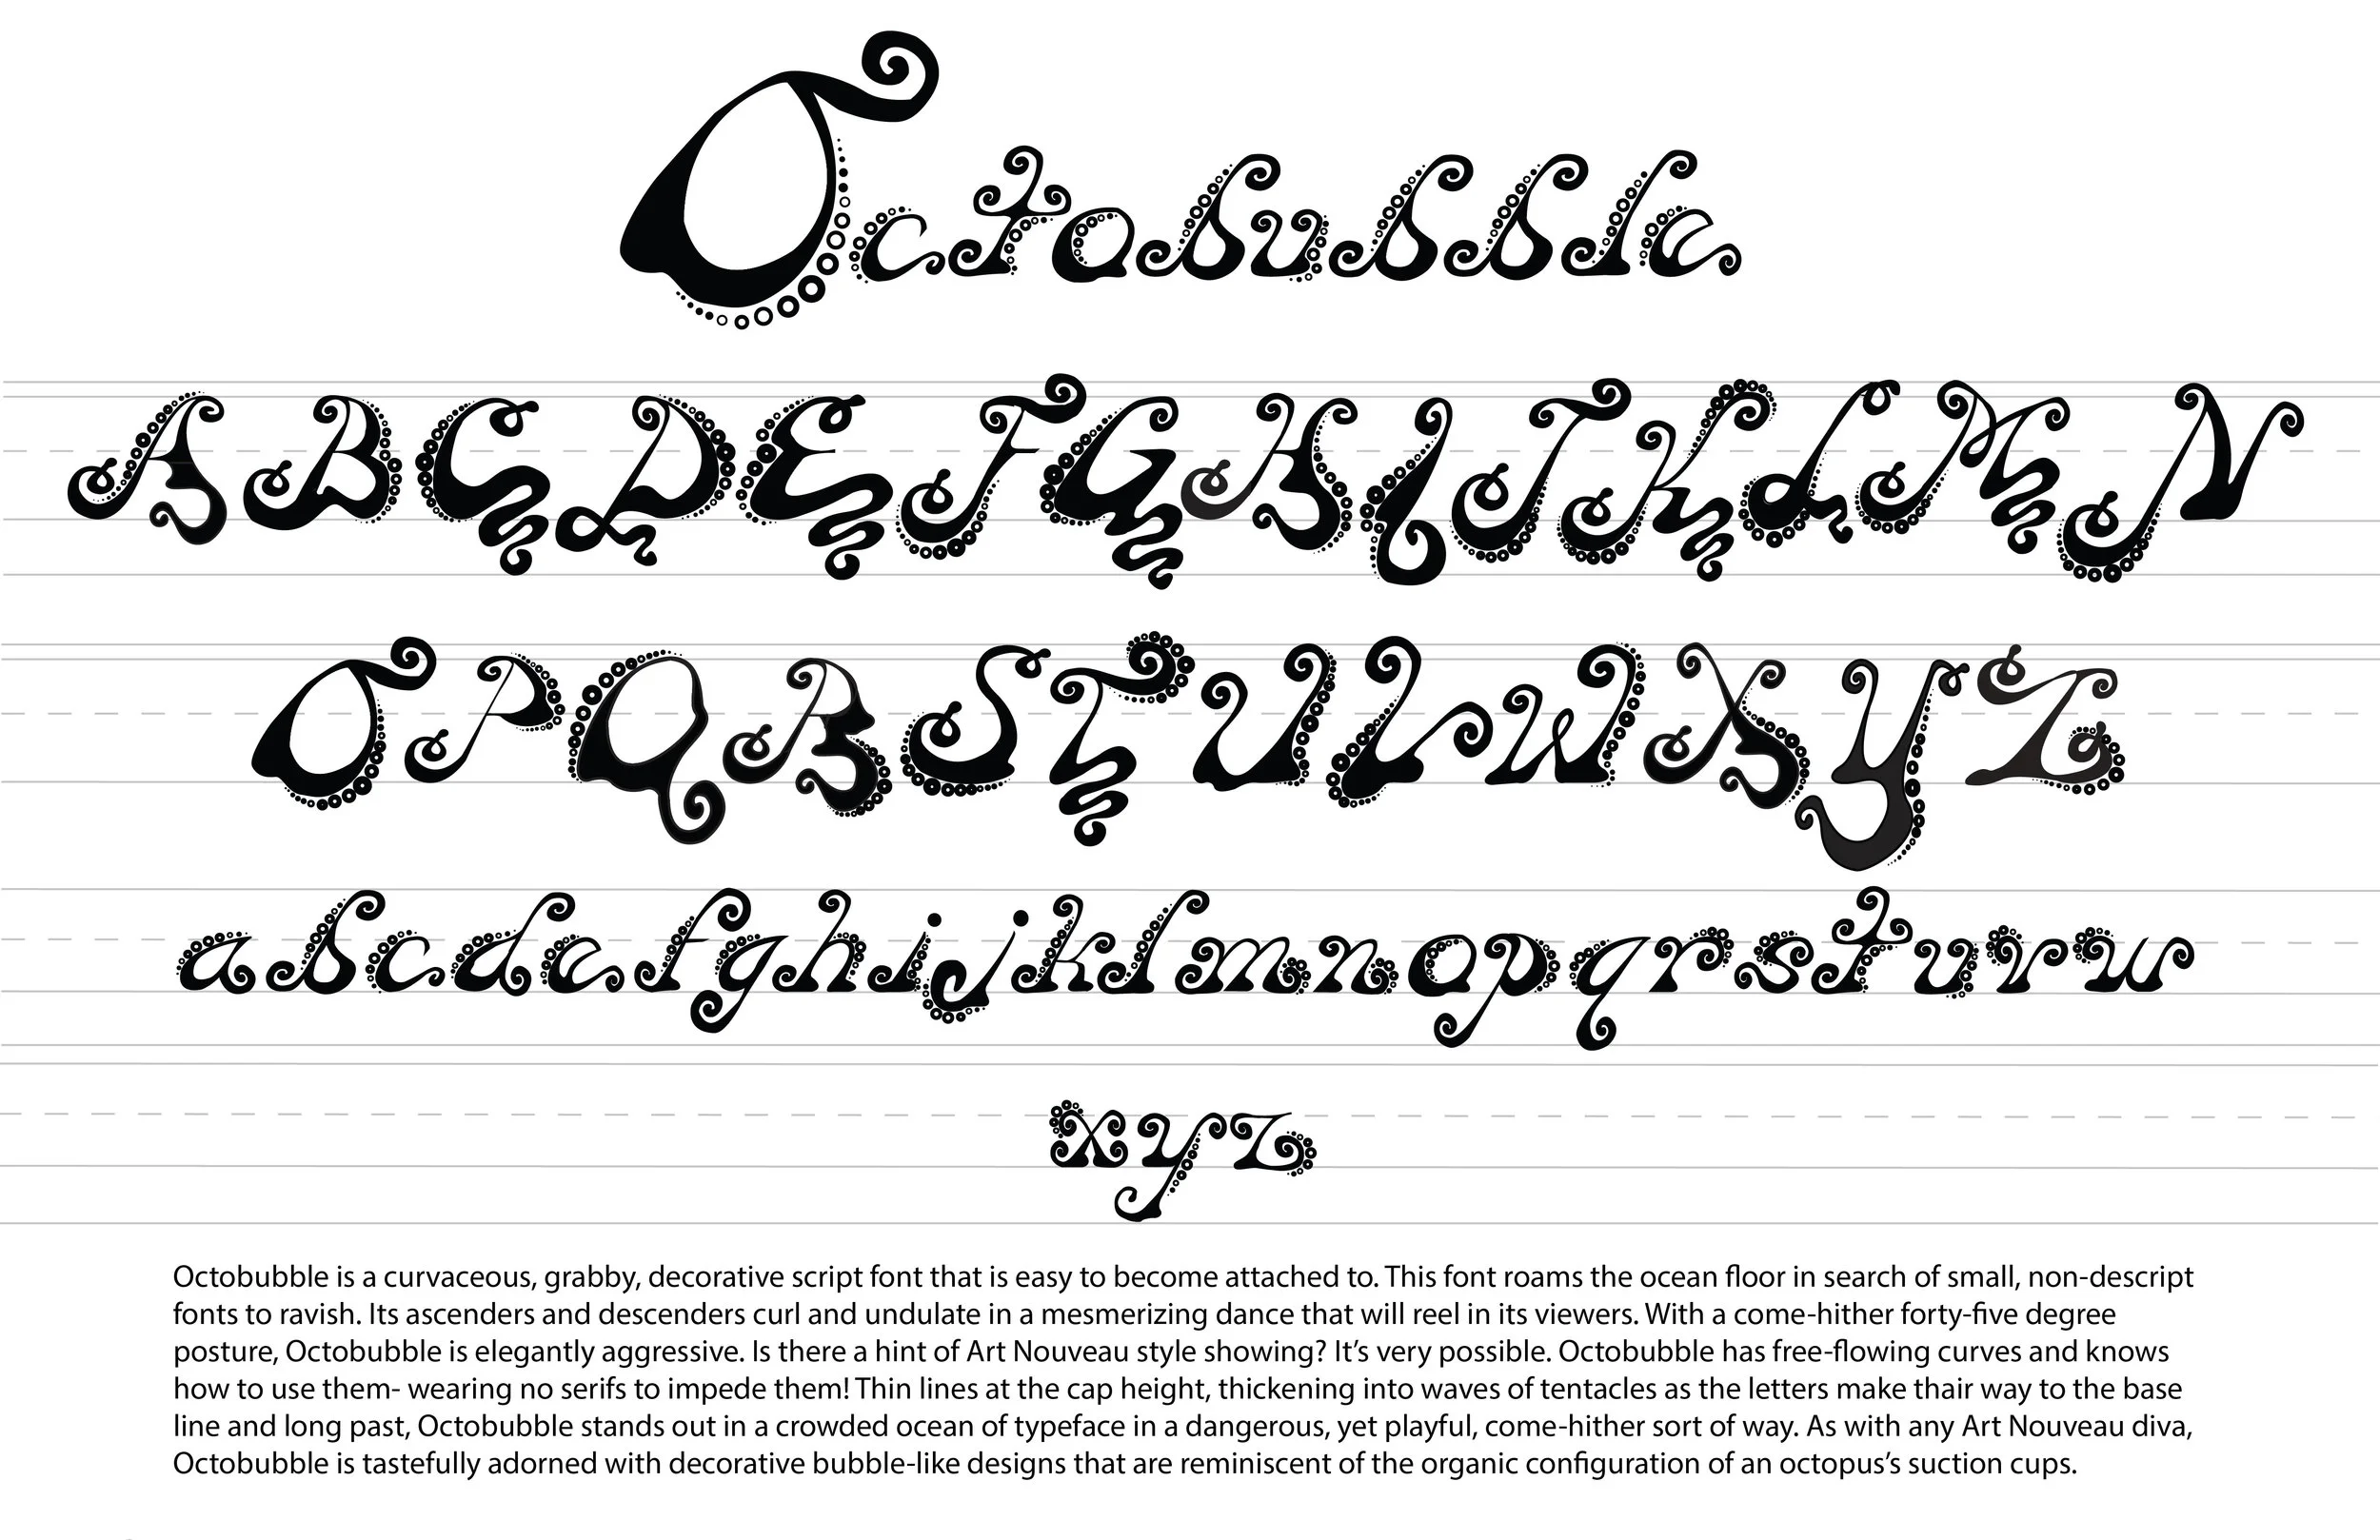 Octobubble
A B C D E F G H I J K L M N
O P Q R S T U V W X Y Z
a b c d e f g h i j k l m n o p q r s t u v w
x y z
Octobubble is a curvaceous, grabby, decorative script font that is easy to become attached to. This font roams the ocean floor in search of small, non-descript
fonts to ravish. Its ascenders and descenders curl and undulate in a mesmerizing dance that will reel in its viewers. With a come-hither forty-five degree
posture, Octobubble is elegantly aggressive. Is there a hint of Art Nouveau style showing? It's very possible. Octobubble has free-flowing curves and knows
how to use them- wearing no serifs to impede them! Thin lines at the cap height, thickening into waves of tentacles as the letters make thair way to the base
line and long past, Octobubble stands out in a crowded ocean of typeface in a dangerous, yet playful, come-hither sort of way. As with any Art Nouveau diva,
Octobubble is tastefully adorned with decorative bubble-like designs that are reminiscent of the organic configuration of an octopus's suction cups.